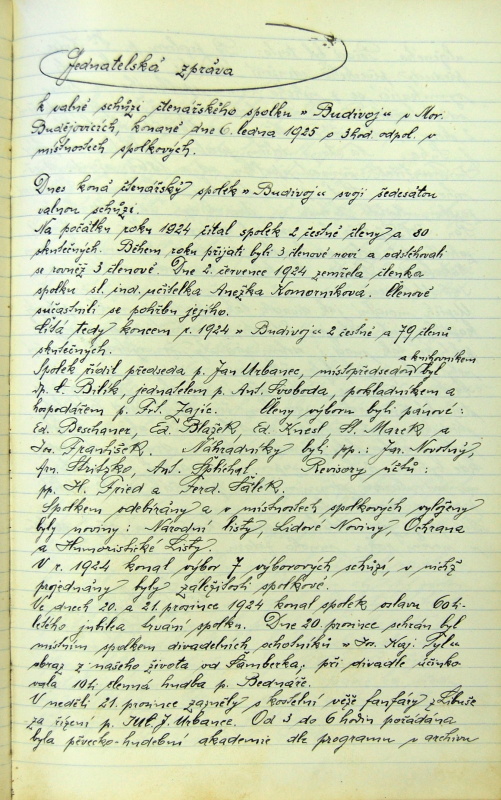 Jednatelská zpráva
k valné schůzi čtenářského spolku „Budivoj“ v Mor.
Budějovicích, konané dne 6. ledna 1925 o 3 hod. odpol. v
místnostech spolkových.
Dnes koná čtenářský spolek „Budivoj“ svoji šedesátou
valnou schůzi.
Na počátku roku 1924 čítal spolek 2 čestné členy a 80
skutečných. Během roku přijati byli 3 členové noví a odstěhovali
se rovněž 3 členové. Dne 2. července 1924 zemřela členka
spolku sl. ind. učitelka Anežka Komorníková. Členové
súčastnili se pohřbu jejího.
Čítá tedy koncem r. 1924 „Budivoj“ 2 čestné a 79 členů
skutečných.
Spolek řídil předseda p. Jan Urbanec, místopředsedou byl
a knihovníkem
p. Bilík, jednatelem p. Ant. Svoboda, pokladníkem a
hospodářem p. Frt. Zajíc. Členy výboru byli pánové:
Ed. Beschaner, Ed. Blažek, Ed. Knesl, St. Marek a
Jos. František. Náhradníky byli pp.: Jar. Novotný,
Stritzko, Ant. Špichal. Revisory účtů:
pp. H. Fried a Ferd. Sálek.
Spolkem odebírány a v místnostech spolkových vyloženy
byly noviny: Národní listy, Lidové Noviny, Ochrana
a Humoristické Listy.
V r. 1924 konal výbor 7 výborových schůzí, v nichž
projednány byly záležitosti spolkové.
Ve dnech 20. a 21. prosince 1924 konal spolek oslavu 60ti-
letého jubilea trvání spolku. Dne 20. prosince sehrán byl
místním spolkem divadelních ochotníků „Jos. Kaj. Tyl“
obraz z našeho života od Šamberka; při divadle účinko
vala 10ti členná hudba p. Bednáře.
V neděli 21. prosince zazněly s kostelní věže fanfáry z Libuše
za řízení p. J. Urbance. Od 3 do 6 hodin pořádána
byla pěvecko-hudební akademie dle programu v archivu